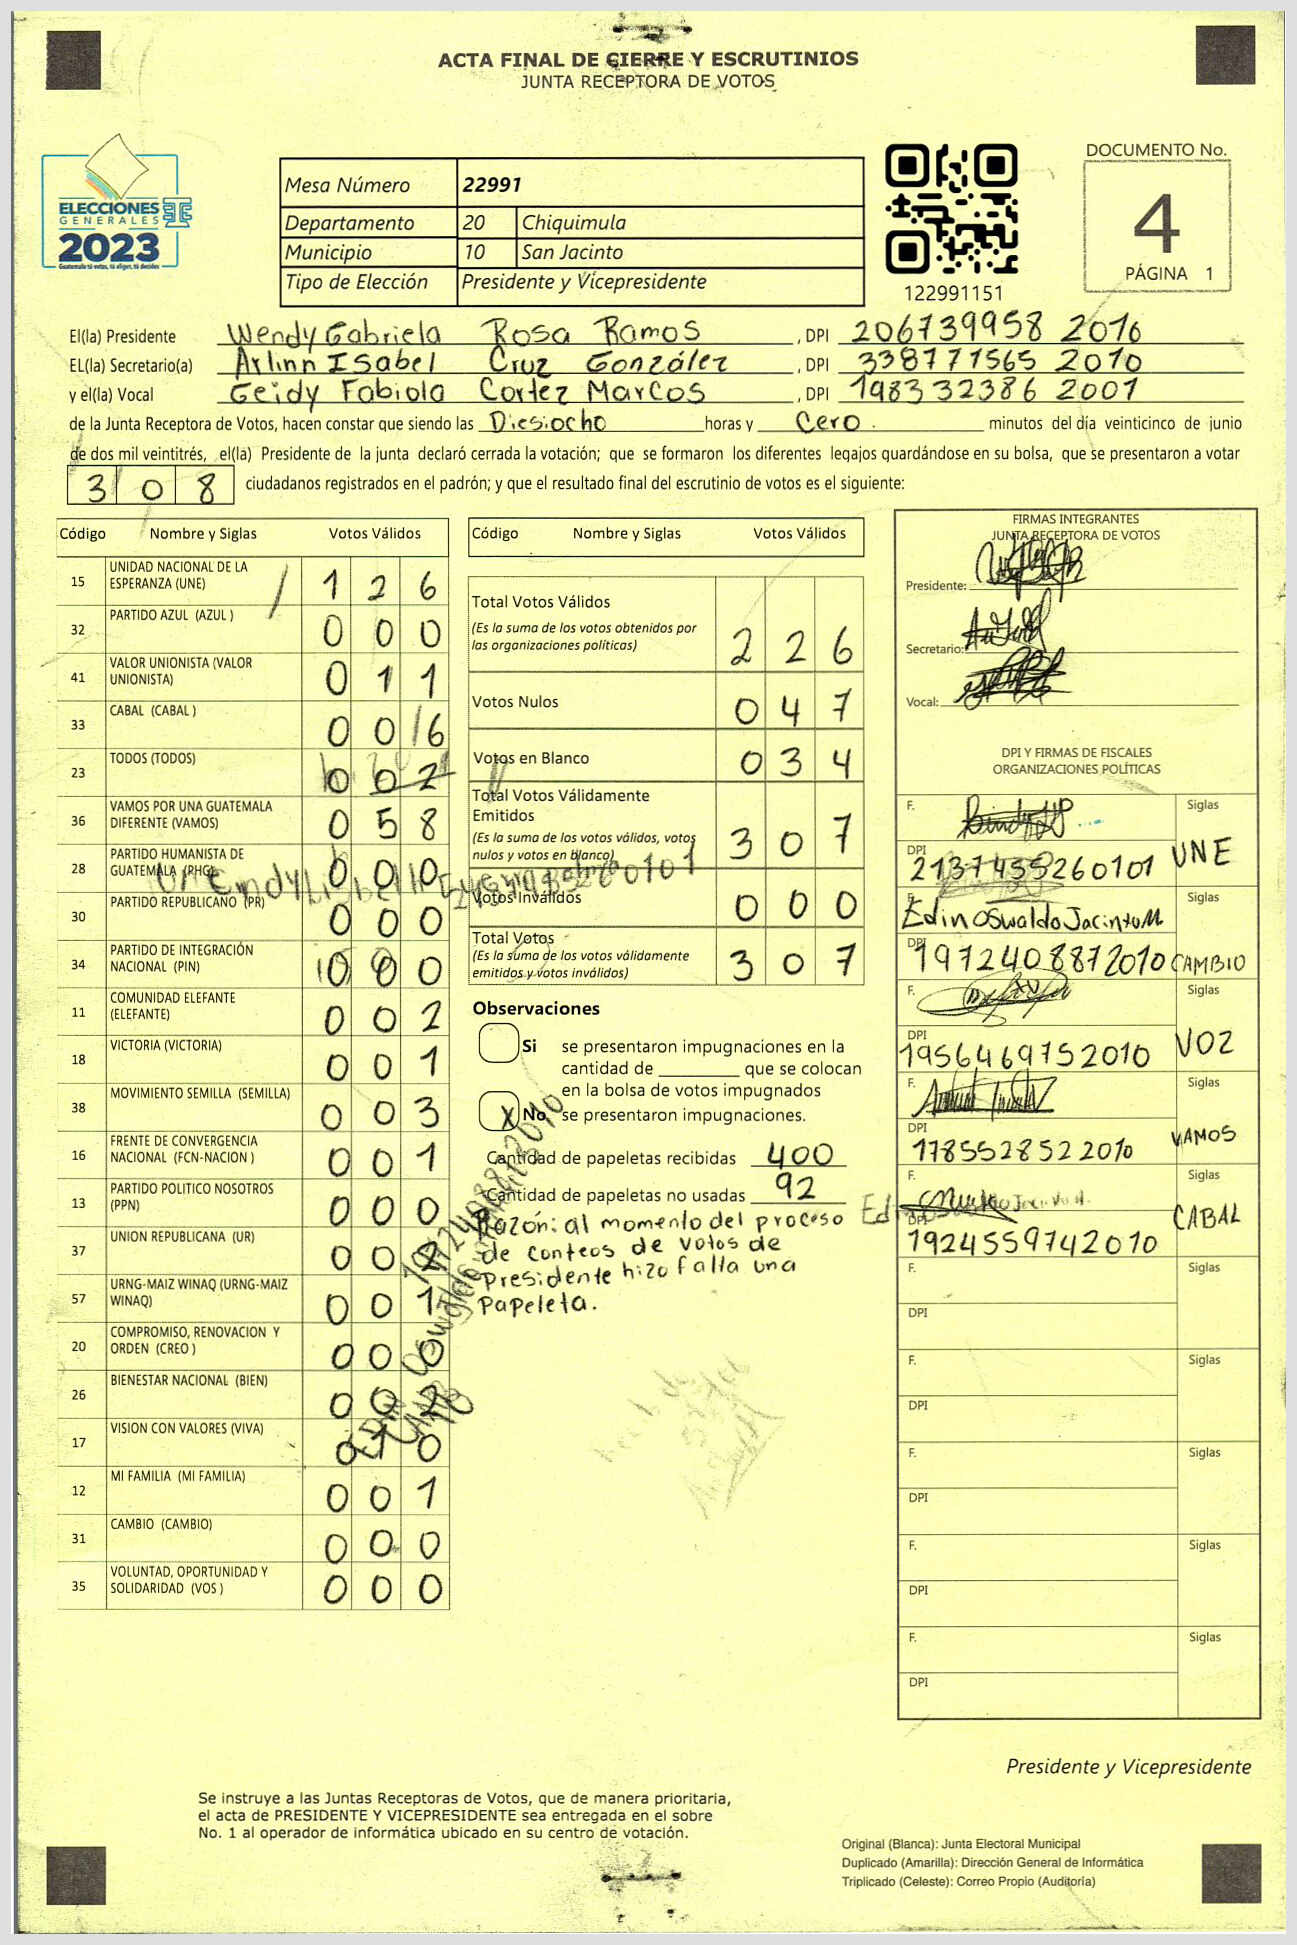 ACTA FINAL DE CIERRE Y ESCRUTINIOS
JUNTA RECEPTORA DE VOTOS
ELECCIONES
GENERALES
2023
Guatemala tú votas, tú eliges, tú decides
Mesa Número 22991
Departamento 20 Chiquimula
Municipio 10 San Jacinto
Tipo de Elección Presidente y Vicepresidente
122991151
DOCUMENTO No.
4
PÁGINA 1
El(la) Presidente Wendy Gabriela Rosa Ramos, DPI 206739958 2010
EL(la) Secretario(a) Arlinn Isabel Cruz González, DPI 338771565 2010
y el(la) Vocal Geidy Fabiola Cortez Marcos, DPI 198332386 2001
de la Junta Receptora de Votos, hacen constar que siendo las Diesiocho horas y Cero minutos del día veinticinco de junio
de dos mil veintitrés, el(la) Presidente de la junta declaró cerrada la votación; que se formaron los diferentes legajos guardándose en su bolsa, que se presentaron a votar
308 ciudadanos registrados en el padrón; y que el resultado final del escrutinio de votos es el siguiente:
Código Nombre y Siglas Votos Válidos
15 UNIDAD NACIONAL DE LA ESPERANZA (UNE) 1 2 6
32 PARTIDO AZUL (AZUL ) 0 0 0
41 VALOR UNIONISTA (VALOR UNIONISTA) 0 1 1
33 CABAL (CABAL ) 0 0 16
23 TODOS (TODOS) 0 0 2
36 VAMOS POR UNA GUATEMALA DIFERENTE (VAMOS) 0 5 8
28 PARTIDO HUMANISTA DE GUATEMALA (PHG) 0 0 0
30 PARTIDO REPUBLICANO (PR) 0 0 0
34 PARTIDO DE INTEGRACIÓN NACIONAL (PIN) 0 0 0
11 COMUNIDAD ELEFANTE (ELEFANTE) 0 0 2
18 VICTORIA (VICTORIA) 0 0 1
38 MOVIMIENTO SEMILLA (SEMILLA) 0 0 3
16 FRENTE DE CONVERGENCIA NACIONAL (FCN-NACION ) 0 0 1
13 PARTIDO POLITICO NOSOTROS (PPN) 0 0 0
37 UNION REPUBLICANA (UR) 0 0 2
57 URNG-MAIZ WINAQ (URNG-MAIZ WINAQ) 0 0 1
20 COMPROMISO, RENOVACION Y ORDEN (CREO ) 0 0 0
26 BIENESTAR NACIONAL (BIEN) 0 0 2
17 VISION CON VALORES (VIVA) 0 1 0
12 MI FAMILIA (MI FAMILIA) 0 0 1
31 CAMBIO (CAMBIO) 0 0 0
35 VOLUNTAD, OPORTUNIDAD Y SOLIDARIDAD (VOS ) 0 0 0
Código Nombre y Siglas Votos Válidos
Total Votos Válidos 2 2 6
(Es la suma de los votos obtenidos por
las organizaciones políticas)
Votos Nulos 0 4 7
Votos en Blanco 0 3 4
Total Votos Válidamente
Emitidos 3 0 7
(Es la suma de los votos válidos, votos
nulos y votos en blanco)
Votos Inválidos 0 0 0
Total Votos 3 0 7
(Es la suma de los votos válidamente
emitidos y votos inválidos)
Observaciones
Si se presentaron impugnaciones en la
cantidad de ________ que se colocan
en la bolsa de votos impugnados
X No se presentaron impugnaciones.
Cantidad de papeletas recibidas 400
Cantidad de papeletas no usadas 92
Razón: al momento del proceso
de conteos de votos de
Presidente hizo falta una
papeleta.
FIRMAS INTEGRANTES
JUNTA RECEPTORA DE VOTOS
Presidente:
Secretario:
Vocal:
DPI Y FIRMAS DE FISCALES
ORGANIZACIONES POLÍTICAS
F. Siglas
DPI 2137455260101 UNE
F. Edin Oswaldo Jacinto M Siglas
DPI 1972408872010 CAMBIO
F. Siglas
DPI 1956469752010 VOZ
F. Siglas
DPI 1785528522010 VAMOS
F. Siglas
DPI 1924559742010 CABAL
F. Siglas
DPI
F. Siglas
DPI
F. Siglas
DPI
F. Siglas
DPI
F. Siglas
DPI
Presidente y Vicepresidente
Se instruye a las Juntas Receptoras de Votos, que de manera prioritaria,
el acta de PRESIDENTE Y VICEPRESIDENTE sea entregada en el sobre
No. 1 al operador de informática ubicado en su centro de votación.
Original (Blanca): Junta Electoral Municipal
Duplicado (Amarilla): Dirección General de Informática
Triplicado (Celeste): Correo Propio (Auditoría)